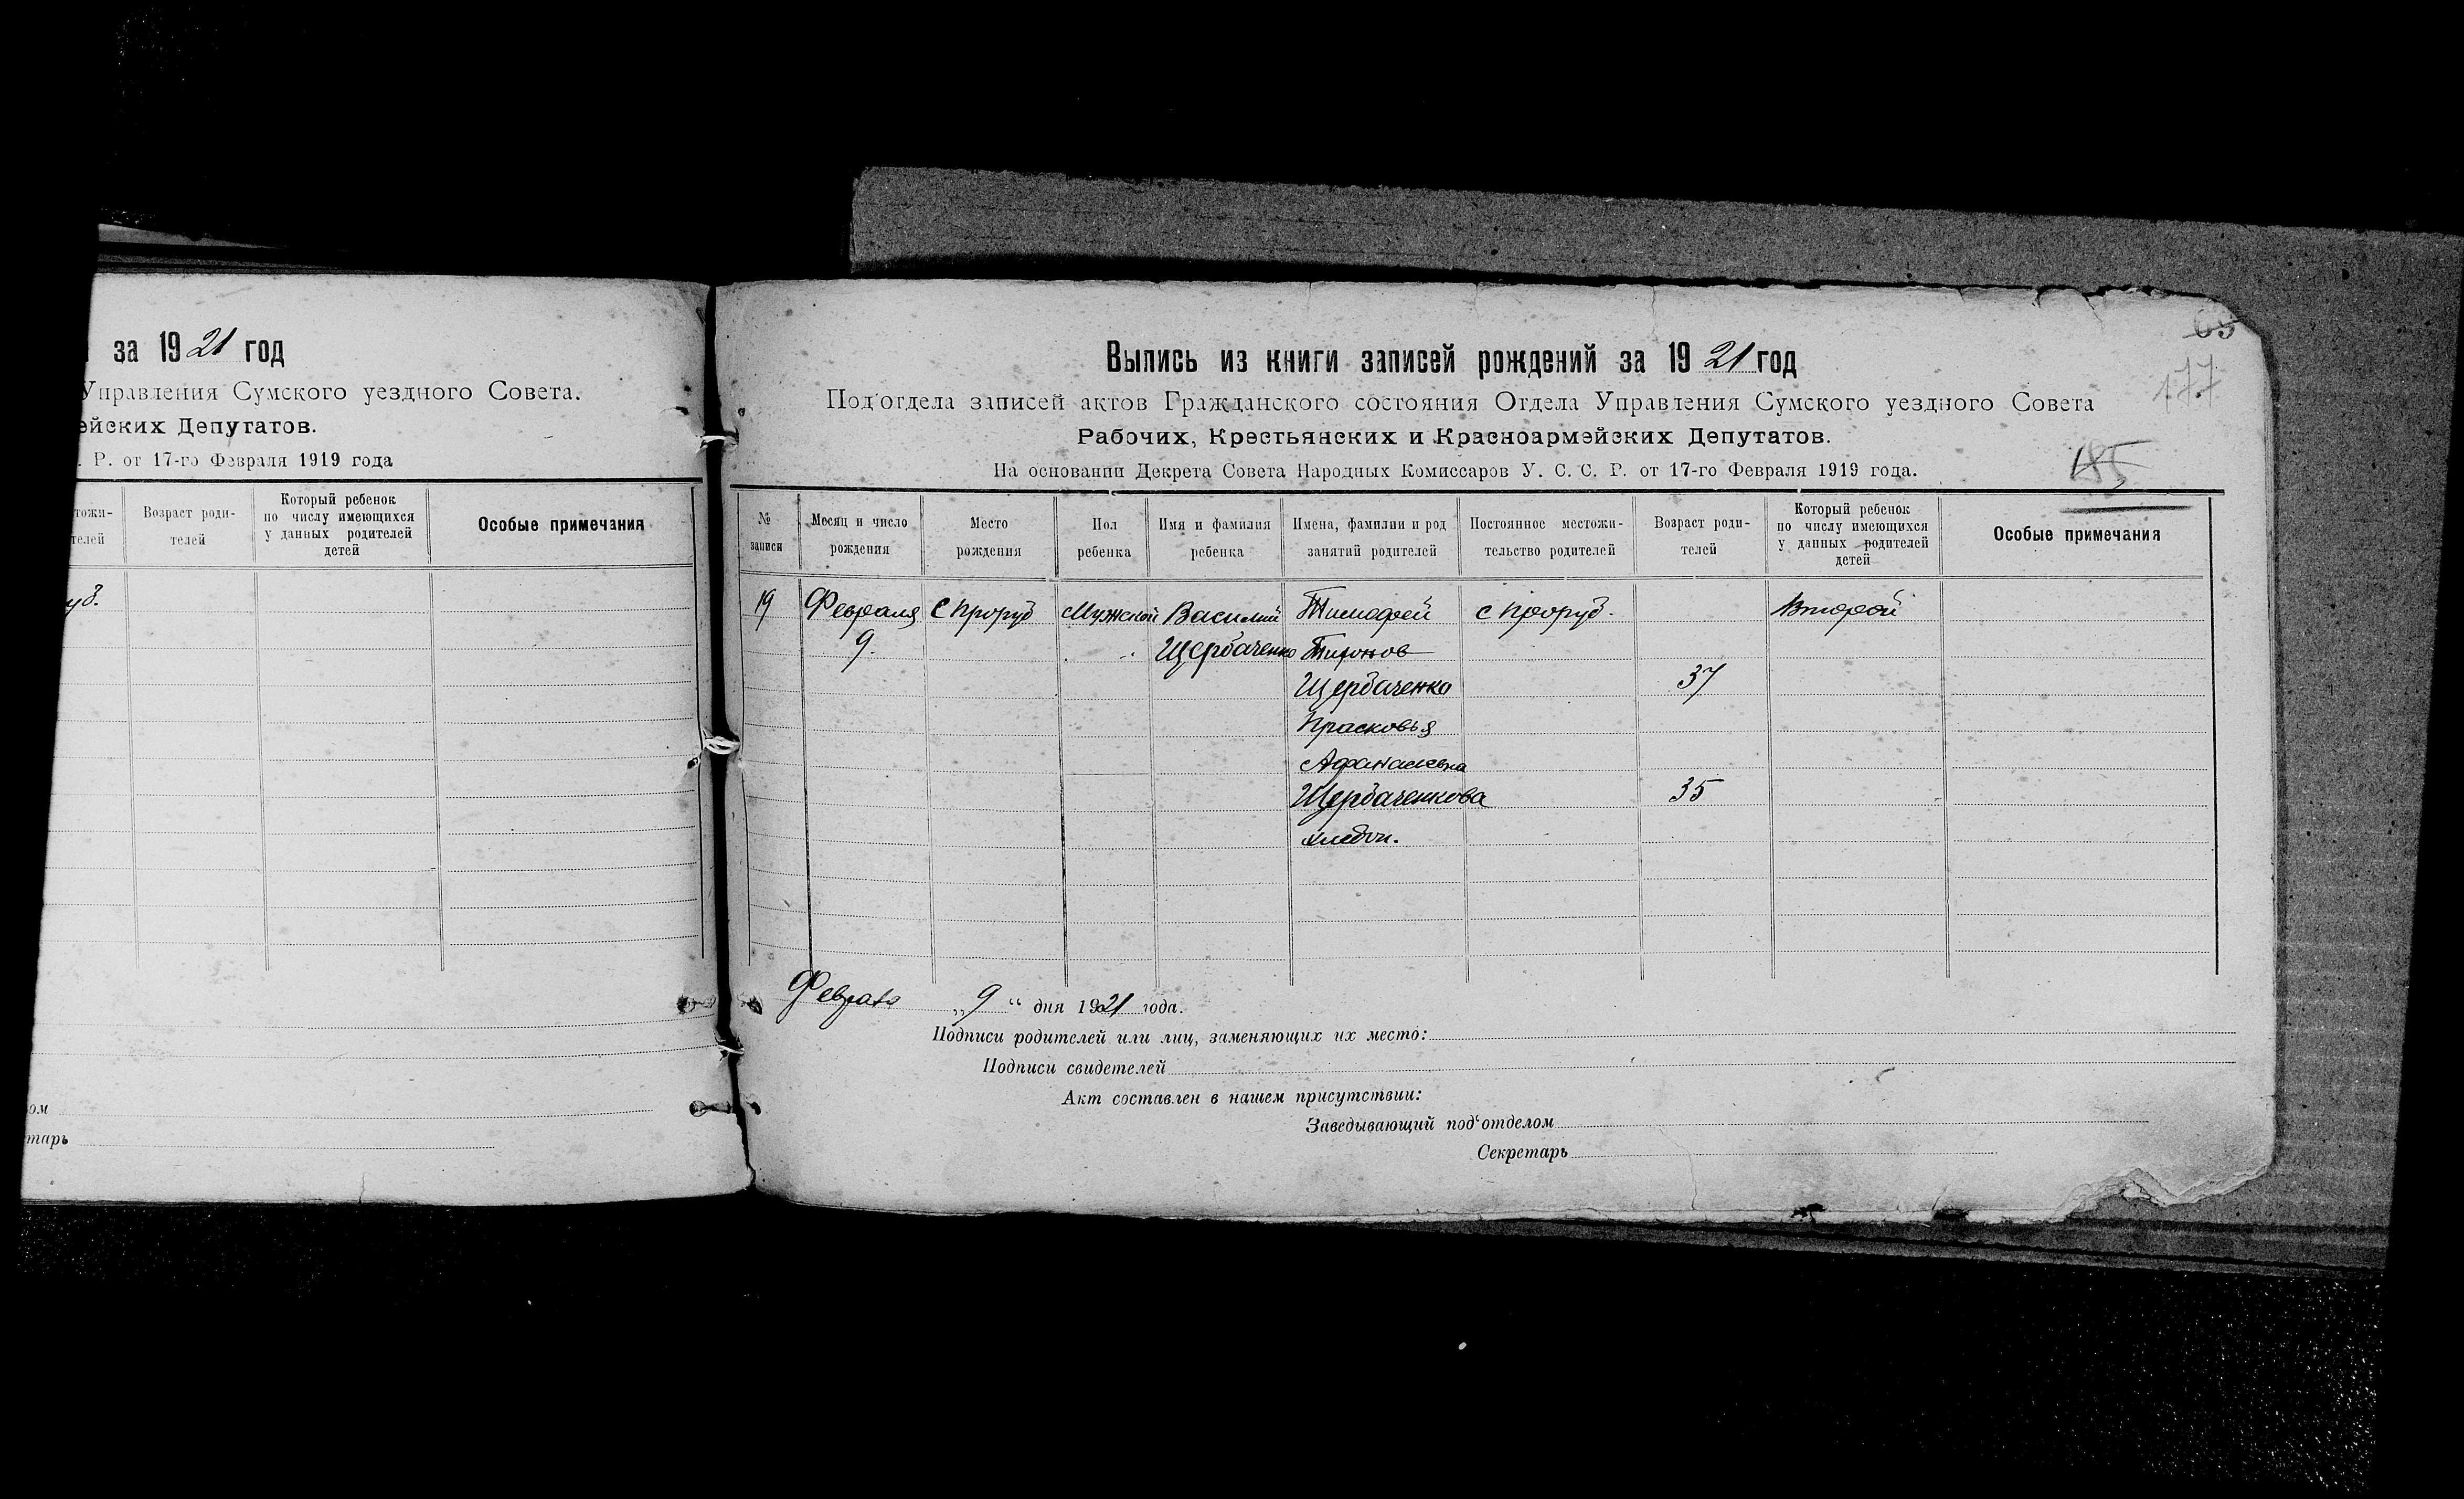 за 1921 год
Управления Сумского уездного Совета.
ейских Депутатов.
. Р. от 17-го Февраля 1919 года
тожи-
телей
Возраст роди-
телей
Который ребенок
по числу имеющихся
у данных родителей
детей
Особые примечания
уб.
ом
тарь
65
177
185
Выпись из книги записей рождений за 1921 год
Под'отдела записей актов Гражданского состояния Отдела Управления Сумского уездного Совета
Рабочих, Крестьянских и Красноармейских Депутатов.
На основании Декрета Совета Народных Комиссаров У. С. С. Р. от 17-го Февраля 1919 года.
№
записи
Месяц и число
рождения
Место
рождения
Пол
ребенка
Имя и фамилия
ребенка
Имена, фамилии и род
занятий родителей
Постоянное местожи-
тельство родителей
Возраст роди-
телей
Который ребенок
по числу имеющихся
у данных родителей
детей
Особые примечания
19 Февраля С Проруб Мужской Василий Тимофей с Проруб. Второй
9. Щербаченко Тифонов
Щербаченко 37
Прасковья
Афанасьевна
Щербаченкова 35
хлебоп.
Февраля „9“ дня 1921 года.
Подписи родителей или лиц, заменяющих их место:
Подписи свидетелей
Акт составлен в нашем присутствии:
Заведывающий под'отделом
Секретарь